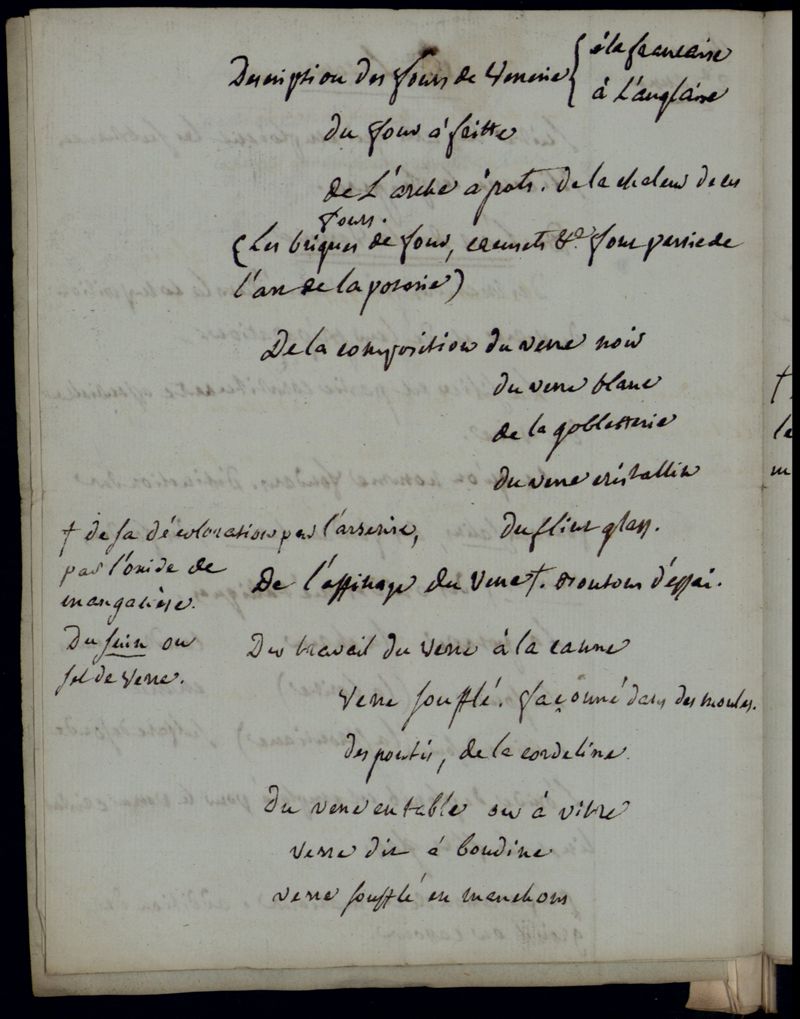 Description des fours de Verrerie { à la francaise
à L'anglaise
du four à fritte
de L'arche à pots. de la chaleur de ces
fours.
(Les briques de four, creusets &a. font partie de
l'art de la poterie)
De la composition du verre noir
du verre blanc
de la gobletterie
du verre cristallin
du flint glass.
† de sa décoloration par l'arsenic,
par l'oxide de
manganèse.
De l'affinage du Verre †. boutons d'essai.
Du suin ou
sel de Verre.
Du travail du Verre à la canne
Verre soufflé. façonné dans des moules.
des pontis, de la cordeline.
Du verre en table ou à vitre
verre dit à boudine
verre soufflé en manchons